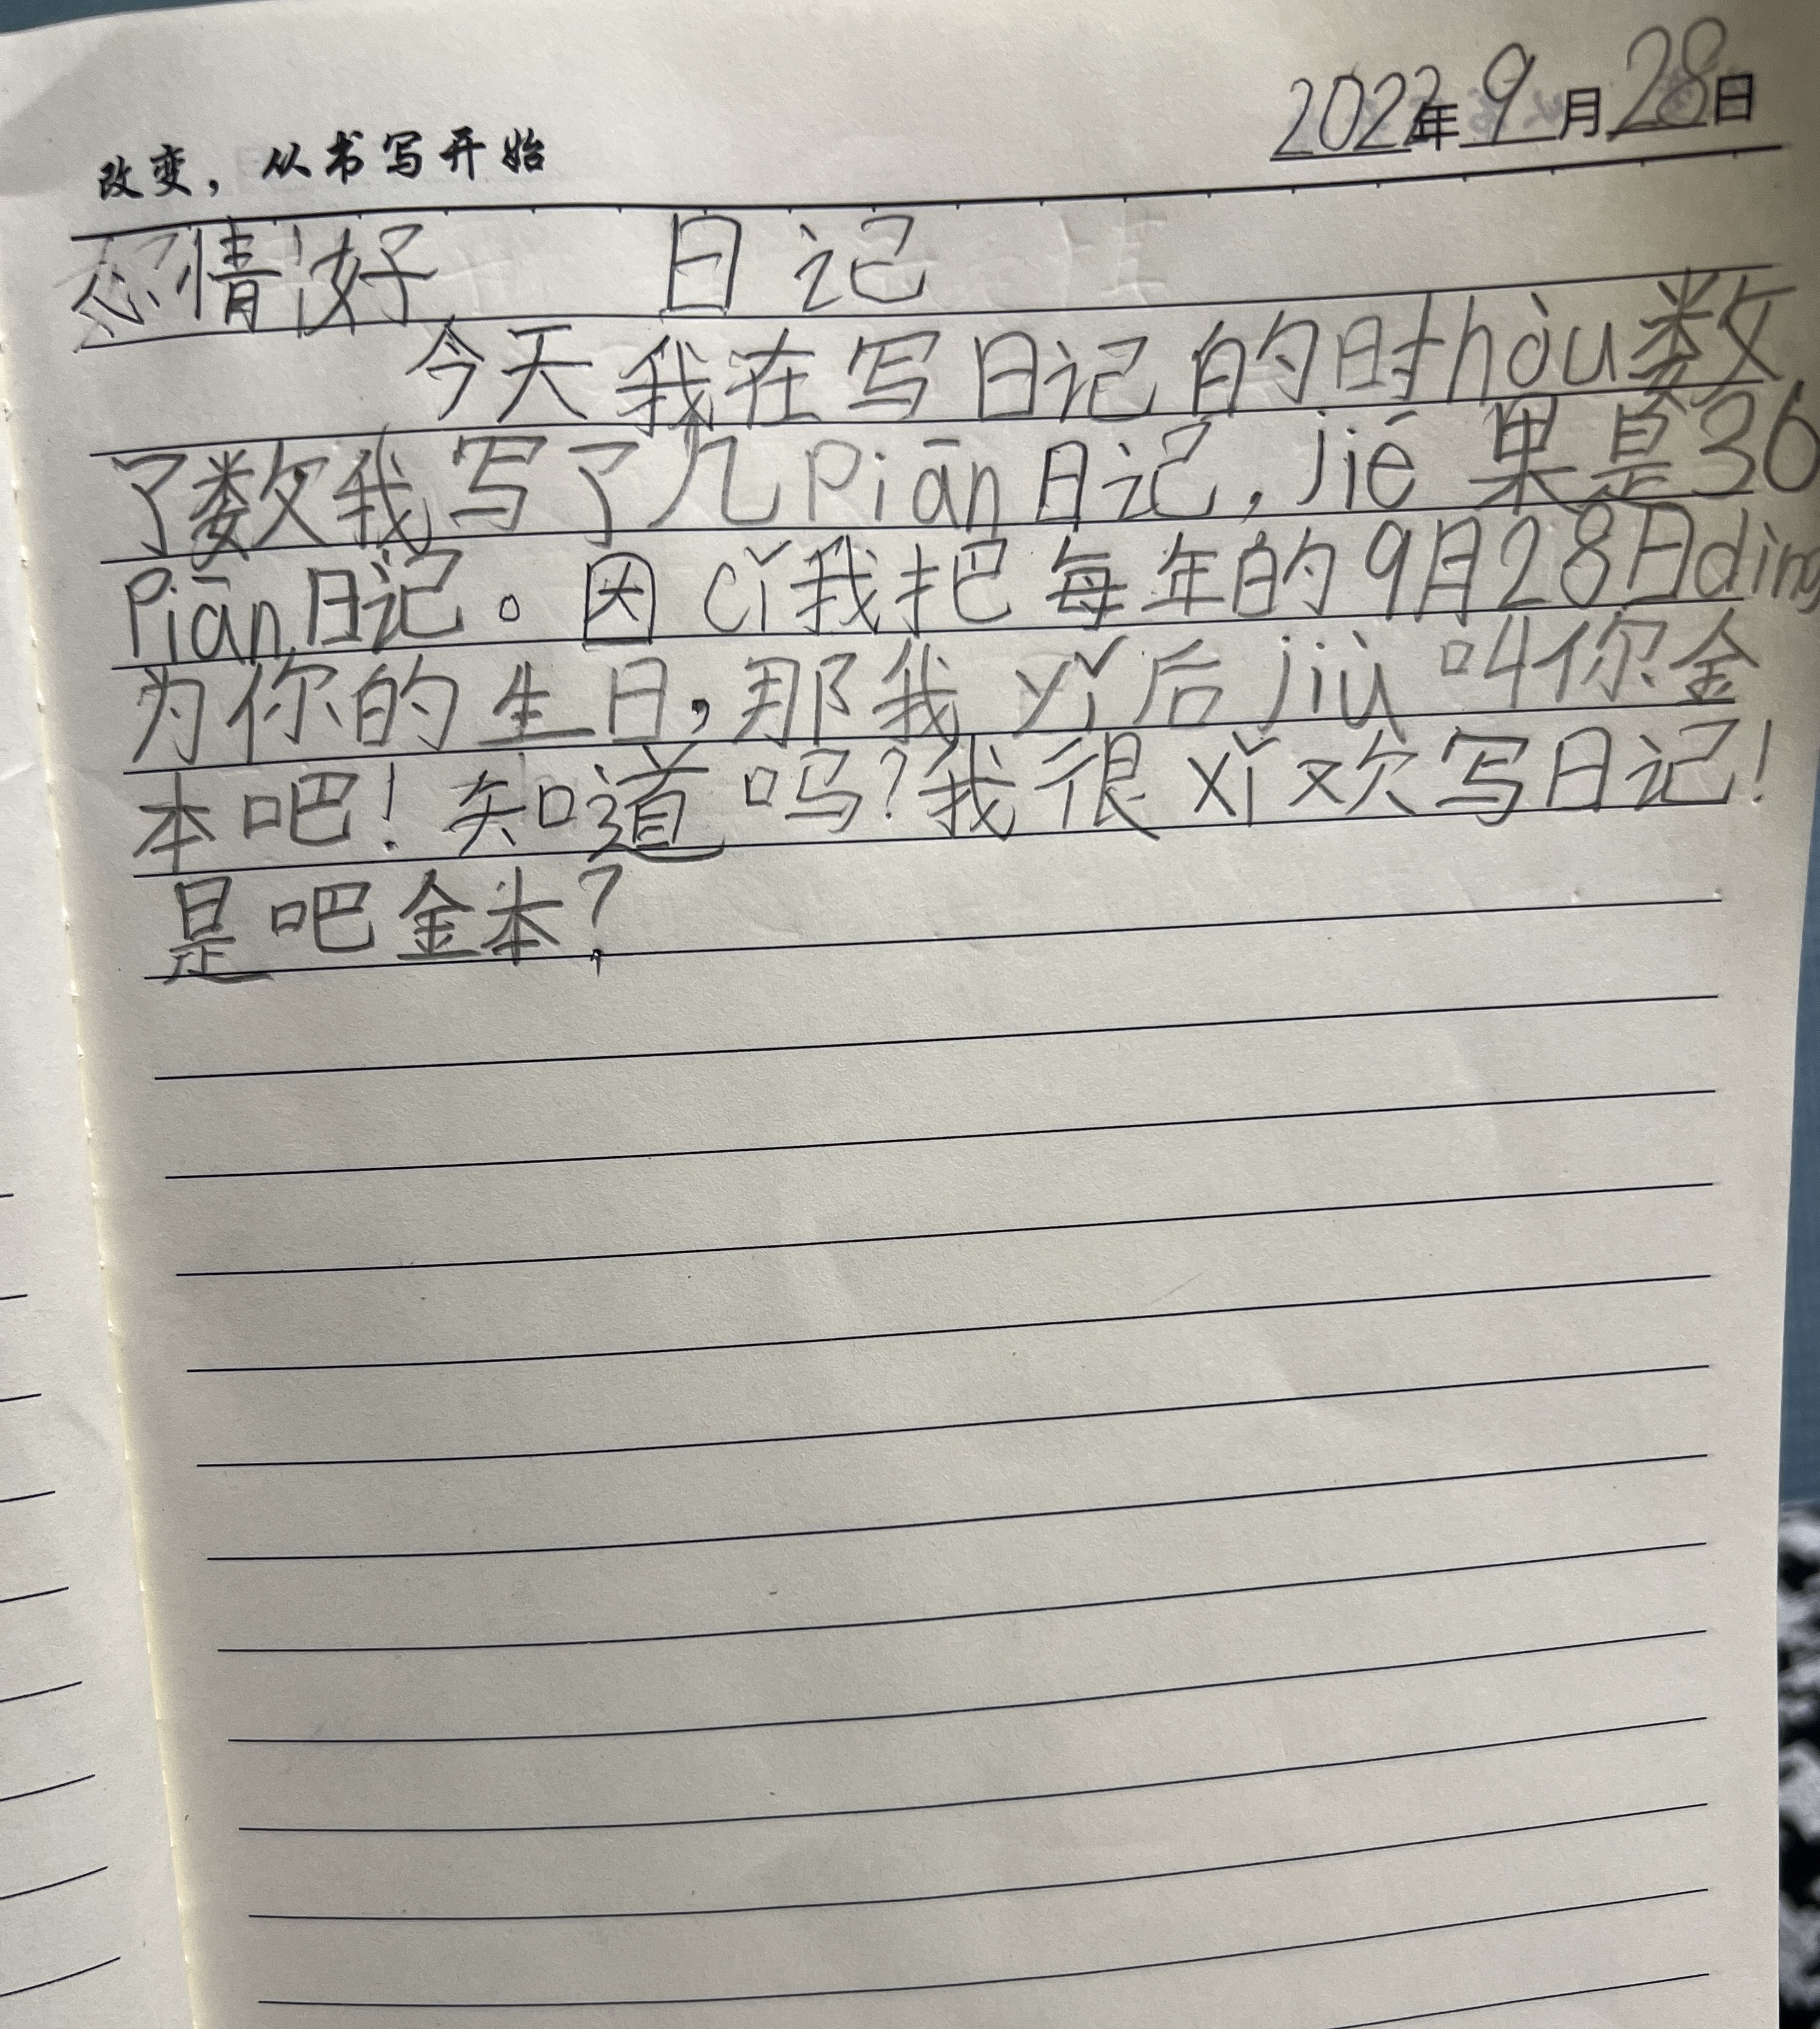 2022年9月28日
改变，从书写开始
心情:好 日记
今天我在写日记的时hòu数
了数我写了几Piān日记，jié果是30
Piān日记。因cǐ我把每年的9月28日dìng
为你的生日，那我yǐ后jiù叫你金
本吧！知道吗？我很xǐ欢写日记！
是吧金本？